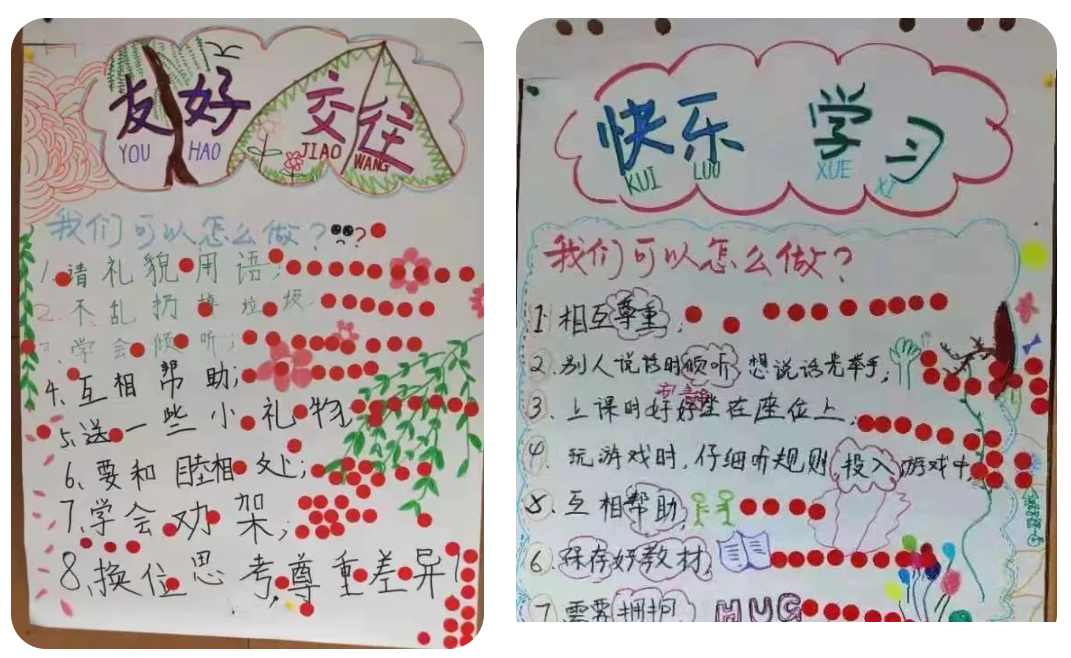 友好 交往
YOU HAO JIAO WANG
我们可以怎么做??
1.请礼貌用语;
2.不乱扔掉垃圾;
3.学会倾听;
4.互相帮助;
5.送一些小礼物
6.要和睦相处;
7.学会劝架;
8.换位思考尊重差异!
快乐 学习
KUI LUO XUE XI
我们可以怎么做?
1.相互尊重;
2.别人说话时倾听 想说话先举手;
3.上课时好好坐在座位上.
4.玩游戏时,仔细听规则 投入游戏中
5.互相帮助
6.保存好教材,
7.需要拥抱 HUG